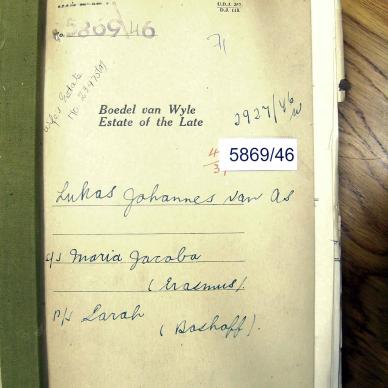 U.D.J. 247.
D.J. 118.
5869/46
71
Estate
Boedel van Wyle
Estate of the Late
2927/46
4
3
5869/46
Lukas Johannes van As
s/s Maria Jacoba
(Erasmus).
p/s Sarah
(Boshoff).